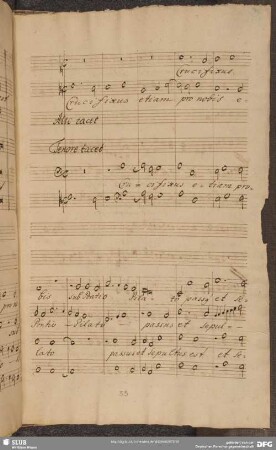 Crucifixus
Crucifixus etiam pro nobis e-
Alto tacet
Tenore tacet
Crucifixus etiam pro
bis sub Pontio Pila- to passus et se-
Pontio Pilato passus et sepul-
lato passus et sepultus est et se-
53
SLUB
DFG